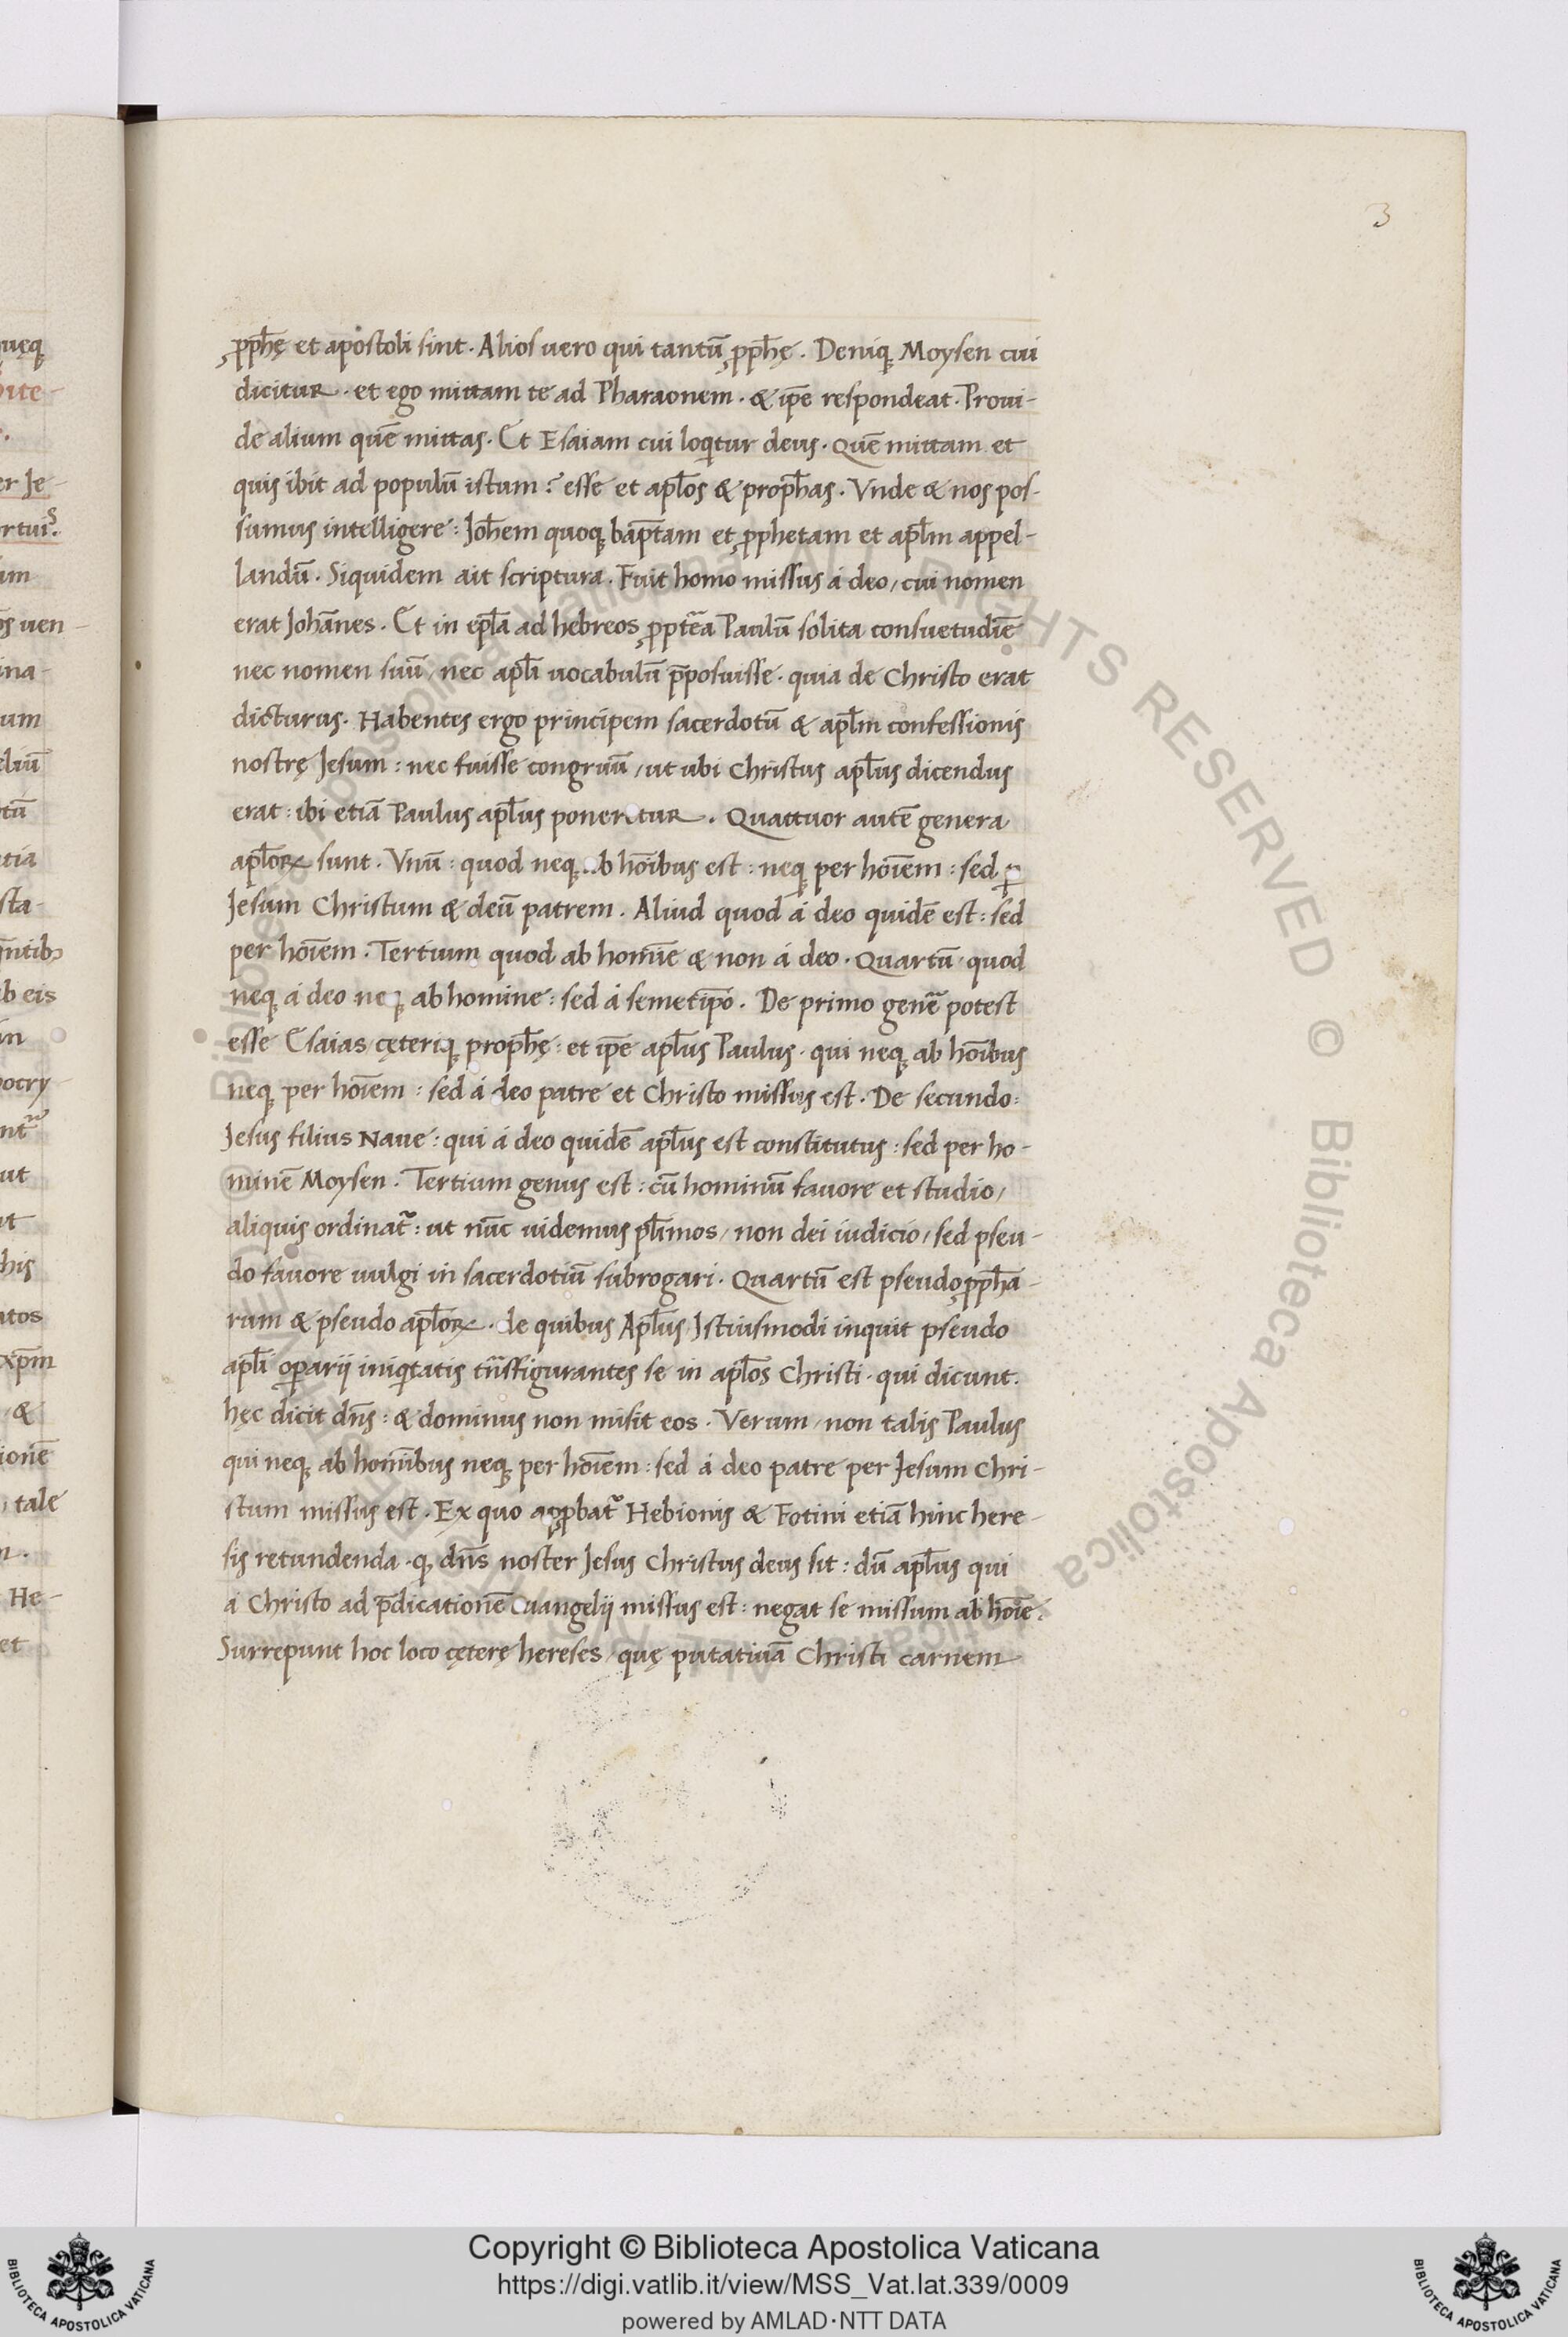 3
ꝓph̅ę et apostoli sint. Alios uero qui tantū ꝓph̅ę. Deniq; Moysen cui
dicitur. et ego mittam te ad Pharaonem. & ip̅e respondeat. Proui-
de alium quē mittas. Et Esaiam cui loqͥtur deus. Quē mittam et
quis ibit ad populū istum? esse et apl̅os & proph̅as. Vnde & nos pos-
sumus intelligere: Joh̅em quoq; bap̅tam et ꝓphetam et apl̅m appel-
landū. Siquidem ait scriptura. Fuit homo missus á deo, cui nomen
erat Johānes. Et in epl̅a ad hebreos ꝓpte̅a Paulū solita consuetudīe
nec nomen suū, nec apl̅i uocabulū p̅posuisse. quia de Christo erat
dicturus. Habentes ergo principem sacerdotū & apl̅m confessionis
nostrę Jesum: nec fuisse congruū, ut ubi Christus apl̅us dicendus
erat: ibi etiā Paulus apl̅us poneretur. Quattuor autē genera
apl̅oꝝ sunt. Vnū: quod neq; ab ho̅ibus est: neq; per ho̅iem: sed ꝑ
Jesum Christum & deū patrem. Aliud quod á deo quidē est: sed
per ho̅iem. Tertium quod ab homīe & non á deo. Quartū quod
neq; á deo neq; ab homine: sed á semetip̅o. De primo gene̅ potest
esse Esaias, cęteriq; proph̅ę: et ip̅e apl̅us Paulus. qui neq; ab ho̅ibus
neq; per ho̅iem: sed á deo patre et Christo missus est. De secundo:
Jesus filius Naue: qui á deo quidē apl̅us est constitutus: sed per ho-
minē Moysen. Tertium genus est: cū hominū fauore et studio,
aliquis ordinat᷑: ut nūc uidemus pl̅imos, non dei iudicio, sed pseu-
do fauore uulgi in sacerdotiū subrogari. Quartū est pseudoꝓph̅a-
rum & pseudo apl̅oꝝ. de quibus Apl̅us Istiusmodi inquit pseudo
apl̅i oꝑarij iniqͥtatis tn̅sfigurantes se in apl̅os Christi. qui dicunt.
hęc dicit dn̅s: & dominus non misit eos. Verum, non talis Paulus
qui neq; ab homīibus neq; per ho̅iem: sed á deo patre per Jesum Chri-
stum missus est. Ex quo aꝓbat᷑ Hebionis & Fotini etiā hinc here-
sis retundenda. ꝙ dn̅s noster Jesus Christus deus sit: dū apl̅us qui
á Christo ad p̅dicationē Euangelij missus est: negat se missum ab ho̅ie.
Surrepunt hoc loco cęterę hereses, quę putatiuā Christi carnem
Copyright © Biblioteca Apostolica Vaticana
https://digi.vatlib.it/view/MSS_Vat.lat.339/0009
powered by AMLAD·NTT DATA